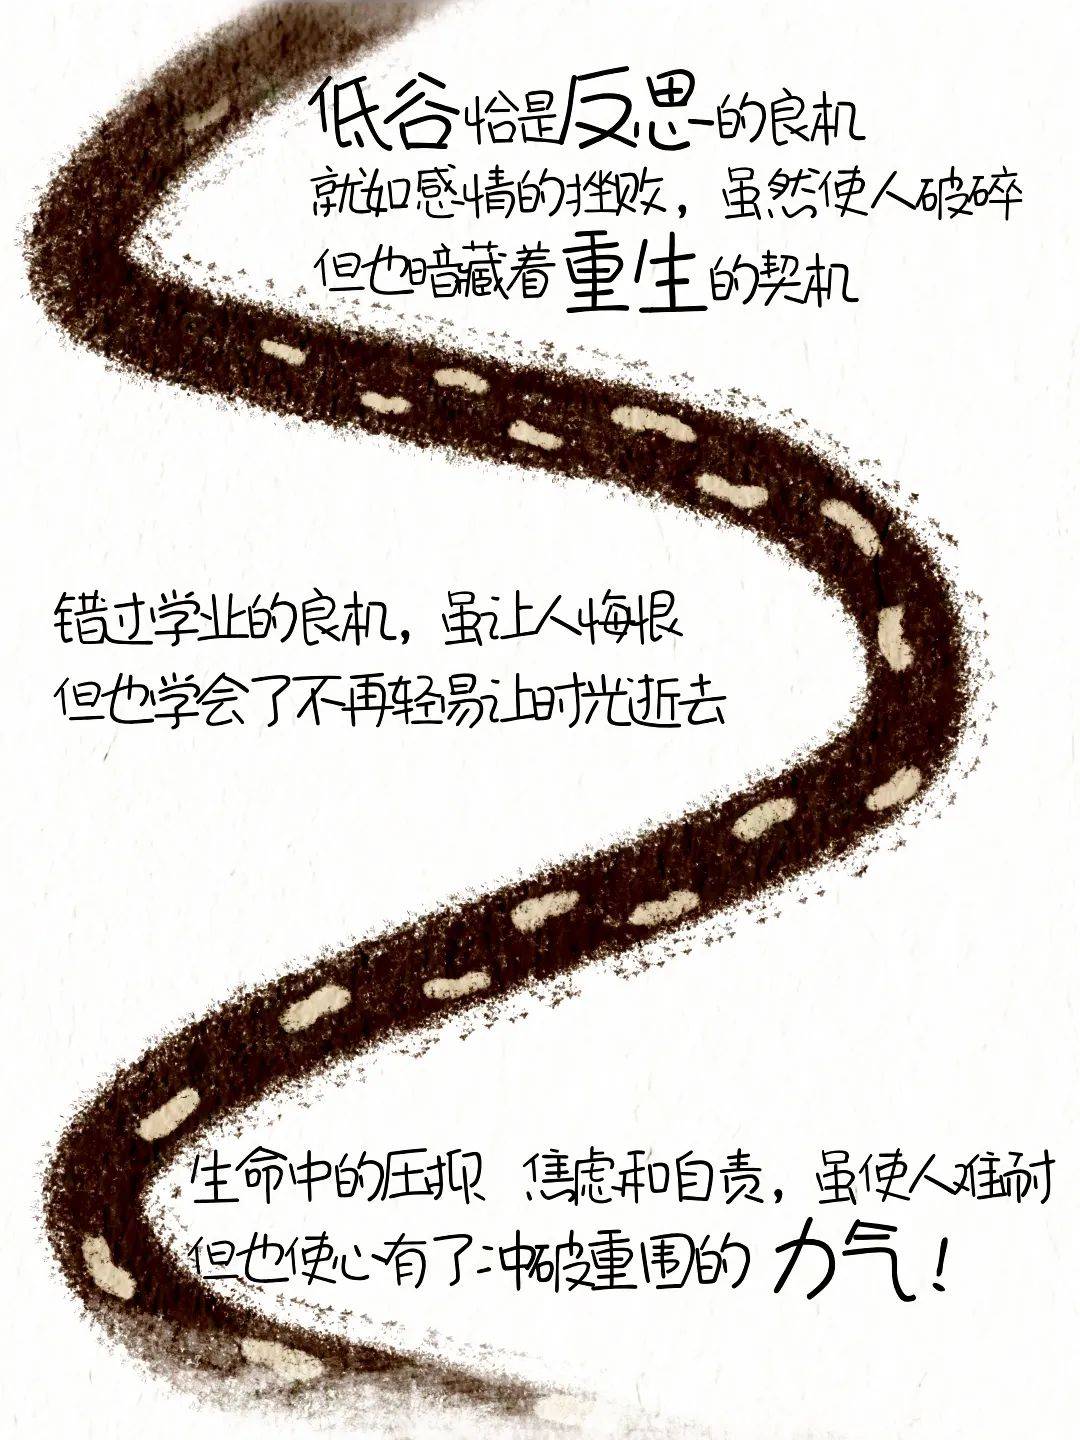 低谷恰是反思的良机
就如感情的挫败，虽然使人破碎
但也暗藏着重生的契机
错过学业的良机，虽让人悔恨
但也学会了不再轻易让时光逝去
生命中的压抑 焦虑和自责，虽使人难耐
但也使心有了冲破重围的 力气！